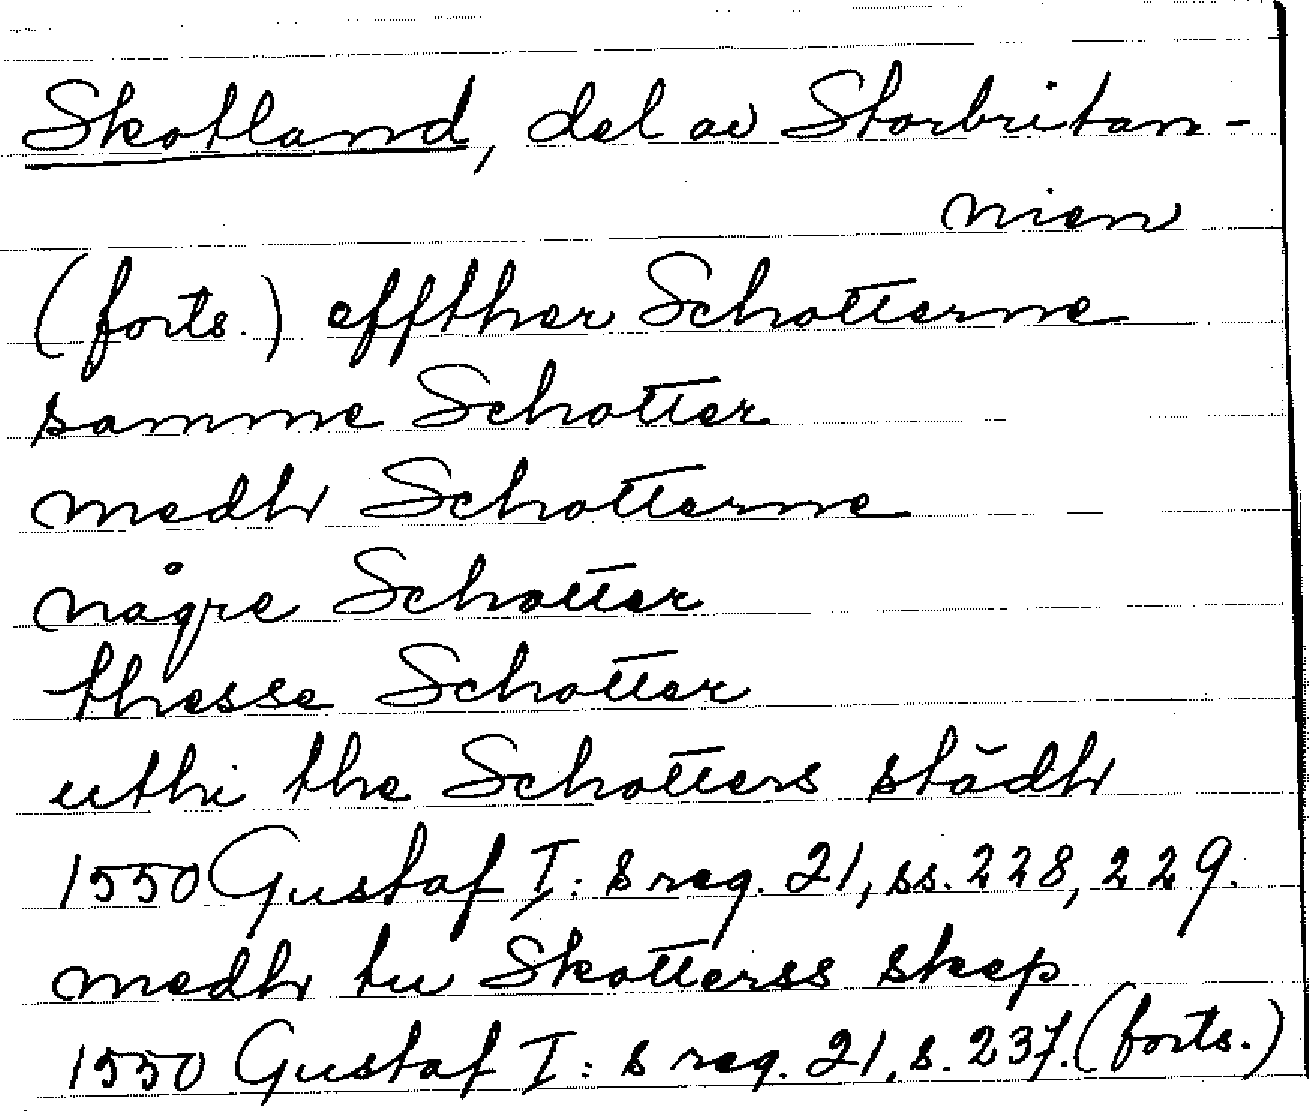 Skotland, del av Storbritan-
nien
(forts.) effther Schotterne
samme Schotter
medh Schotterne
någre Schotter
thesse Schotter
uthi the Schotters städh
1550 Gustaf I: s reg. 21, ss. 228, 229.
medh tu Skotterss skep
1550 Gustaf I: s reg. 21, s. 237. (forts.)